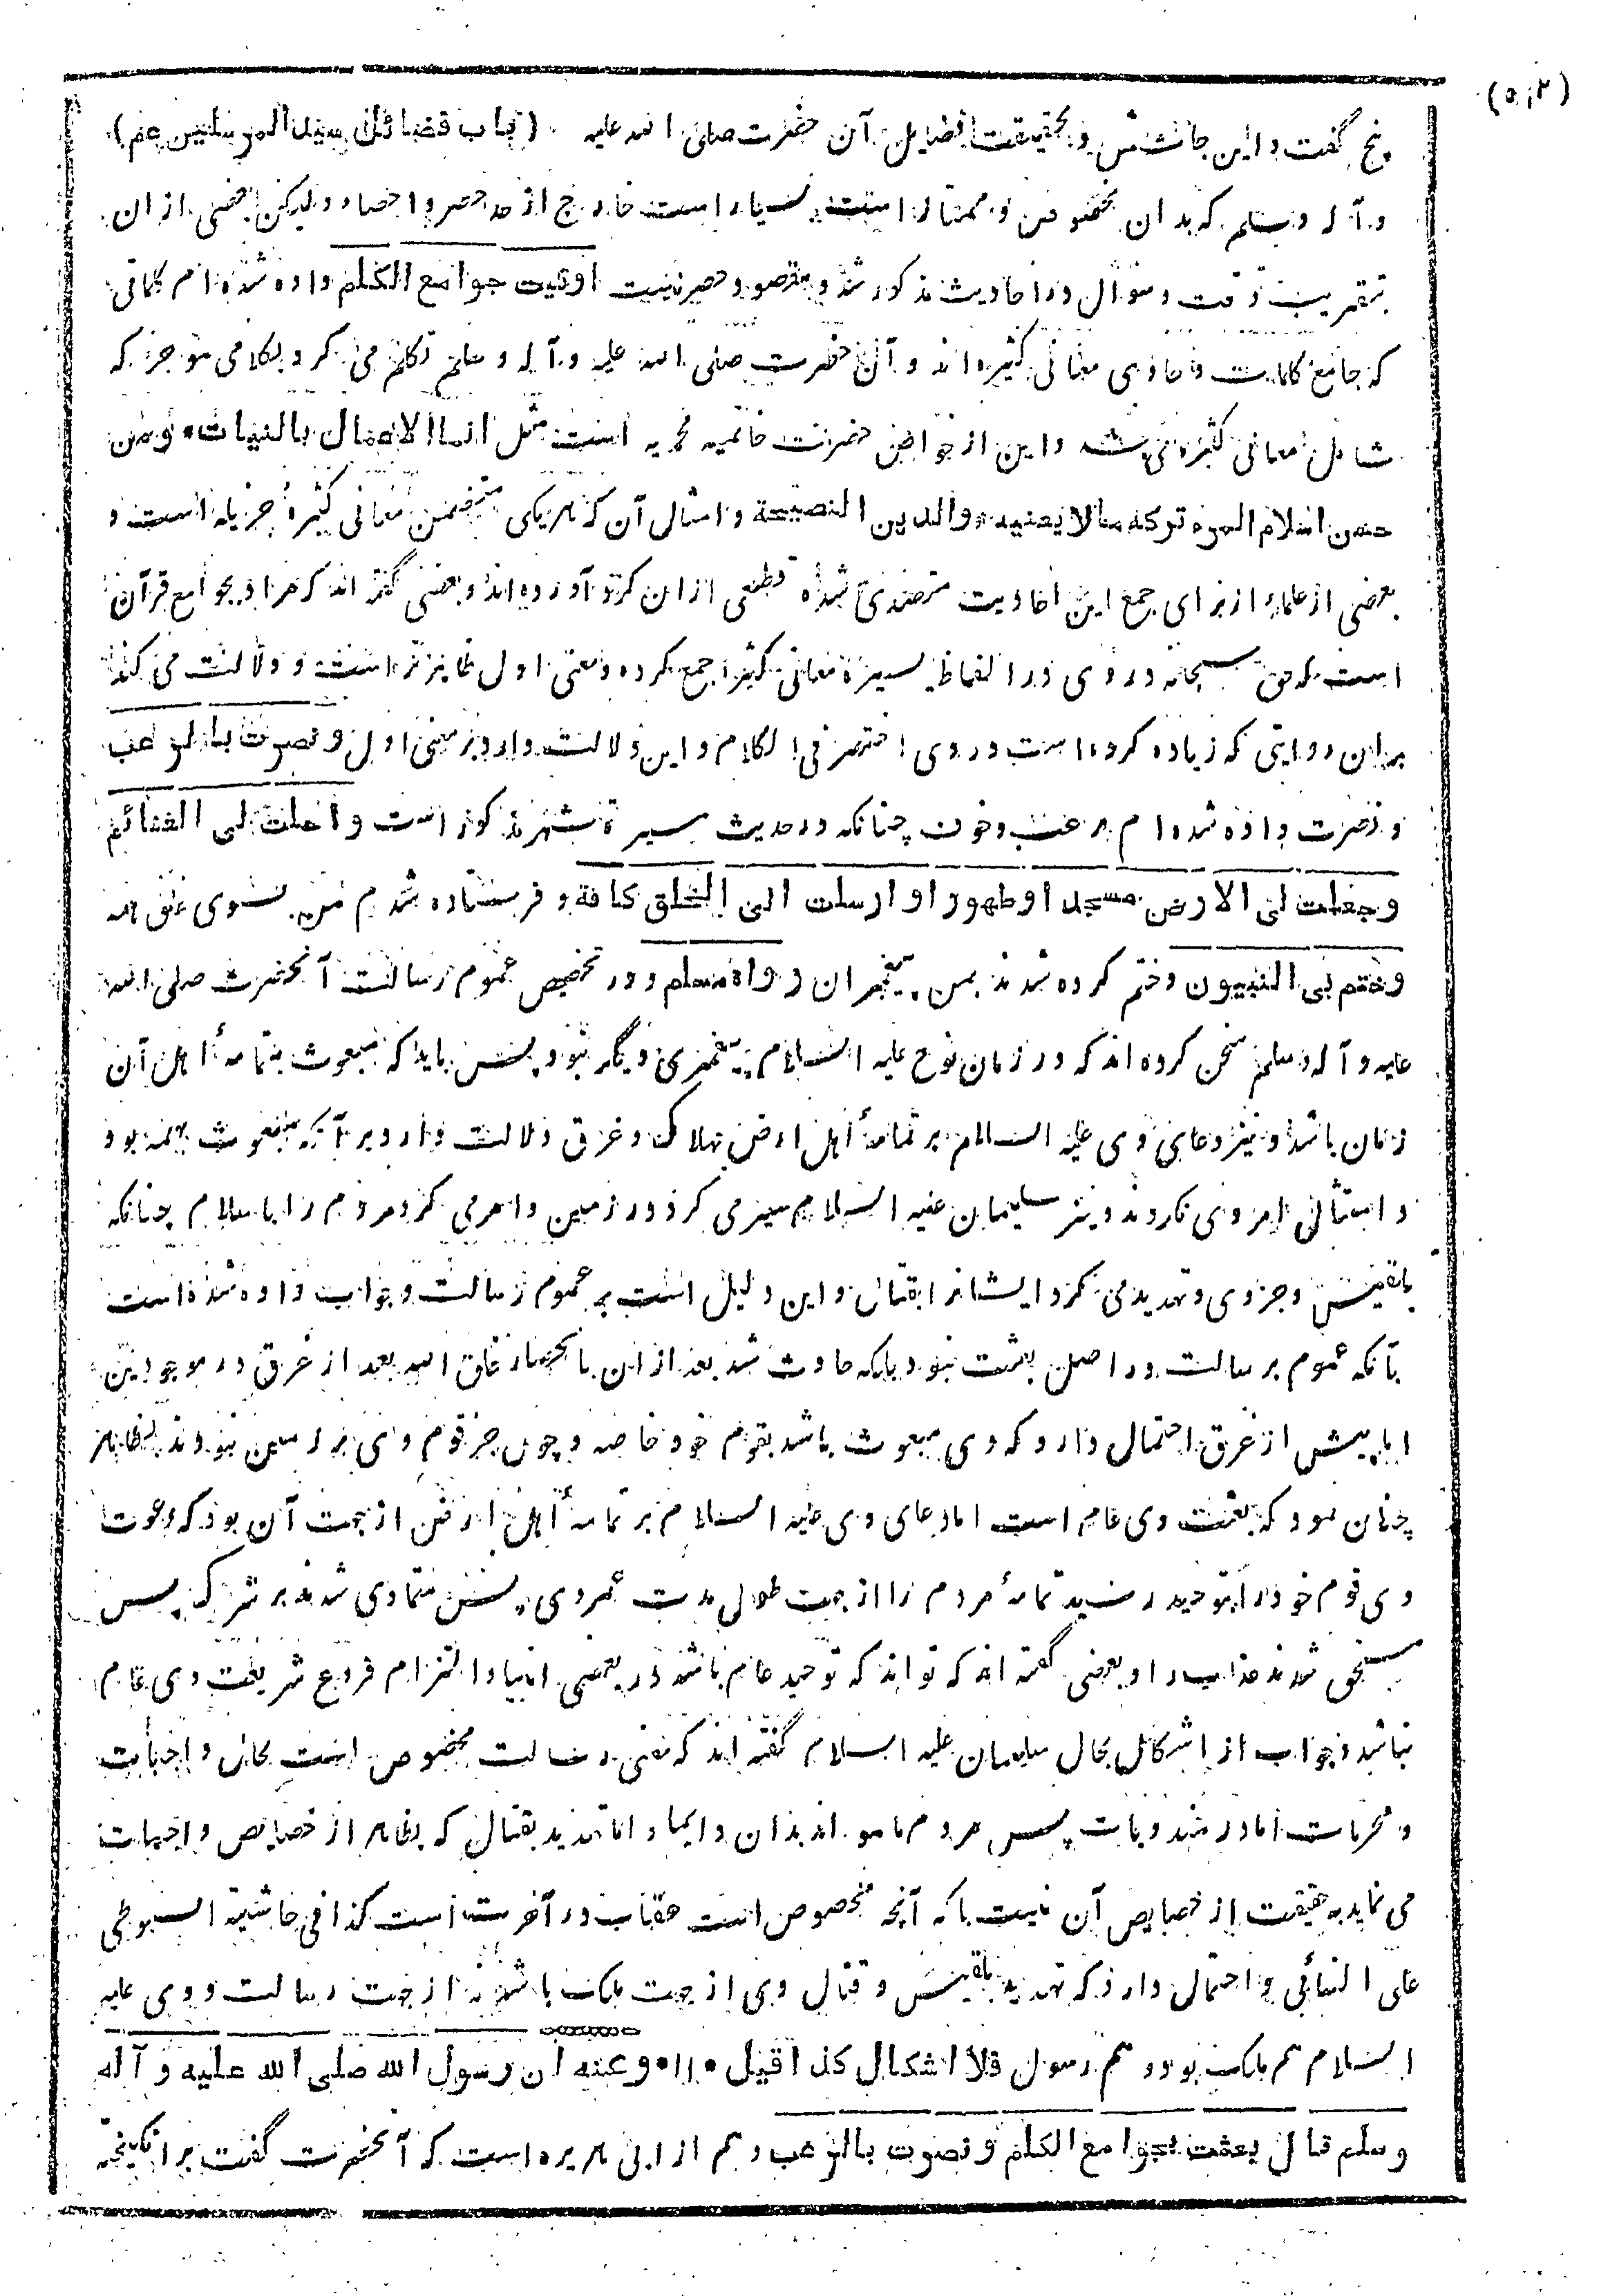 (٥٠٢)
پنج گفت و این جا شش و بحقیقت فضایل آن حضرت صلی الله علیه (باب فضائل سید المرسلین عم)
و آله و سلم که بدان مخصوص و ممتاز است بسیار است خارج از حد حصر و احصاء و لیکن بعضی از ان
بتقریب وقت و سوال در احادیث مذکور شد و مقصود حصر نیست اوتیت جوامع الکلم داده شده ام کلماتی
که جامع کلمات و حاوی معانی کثیره اند و آن حضرت صلی الله علیه و آله و سلم تکلم می کرد بکلامی موجز که
شامل معانی کثیره می باشد و این از خواص حضرت خاتمیه محمدیه است مثل انما الاعمال بالنیات • و من
حسن اسلام المرء ترکه ما لا یعنیه • و الدین النصیحة و امثال آن که هریکی متضمن معانی کثیرهٔ جزیله است و
بعضی از علماء از برای جمع این احادیث متصدی شده قطعی از ان گرد آورده اند و بعضی گفته اند که مراد بجوامع قرآن
است که حق سبحانه در وی در الفاظ یسیره معانی کثیر جمع کرده و معنی اول ظاهرتر است و دلالت می کند
بران روایتی که زیاده کرده است در وی اختصر فی الکلام و این دلالت دارد بر معنی اول و نصرت بالرعب
و نصرت داده شده ام بر عب و خوف چنانکه در حدیث مسیرة شهر مذکور است و احلت لی الغنائم
و جعلت لی الارض مسجدا و طهورا و ارسلت الی الخلق کافة و فرستاده شدم من بسوی خلق همه
و ختم بی النبیون و ختم کرده شدند بمن پیغمبران رواه مسلم و در تخصیص عموم رسالت آنحضرت صلی الله
علیه و آله و سلم سخن کرده اند که در زمان نوح علیه السلام پیغمبری دیگر نبود پس باید که مبعوث بتمامهٔ اهل آن
زمان باشد و نیز دعای وی علیه السلام بر تمامهٔ اهل ارض بهلاک و غرق دلالت دارد بر آنکه مبعوث بهمه بود
و استثنائی از وی نکردند و نیز سلیمان علیه السلام سیر می کرد در زمین و امر می کرد مردم را باسلام چنانکه
بلقیس و جز وی و تهدید می کرد ایشانرا بقتال و این دلیل است بر عموم رسالت و جواب داده شده است
بآنکه عموم رسالت در اصل بعثت نبود بلکه حادث شد بعد از ان بانحصار خلق الله بعد از غرق در موجودین
اما پیش از غرق احتمال دارد که وی مبعوث باشد بقوم خود خاصه و چون جز قوم وی بر زمین نبودند بظاهر
چنان نمود که بعثت وی عام است اما دعای وی علیه السلام بر تمامهٔ اهل ارض از جهت آن بود که دعوت
وی قوم خود را بتوحید رسید تمامهٔ مردم را از جهت طول مدت عمر وی پس متمادی شدند بر شرک پس
مستحق شدند عذاب را و بعضی گفته اند که تواند که توحید عام باشد در بعضی انبیا و التزام فروع شریعت وی عام
نباشد و جواب از اشکال بحال سلیمان علیه السلام گفته اند که معنی رسالت مخصوص است بحال و اجبات
و محرمات اما در مندوبات پس مردم مامور اند بدان دایما و اما تهدید بقتال که بظاهر از خصایص واجبات
می نماید به حقیقت از خصایص آن نیست بلکه آنچه مخصوص است عقاب در آخرت است کذا فی حاشیة السیوطی
علی النسائی و احتمال دارد که تهدید بلقیس و قتال وی از جهت ملک باشد نه از جهت رسالت و وی علیه
السلام هم ملک بود و هم رسول فلا اشکال کذا قیل • ۱۱ • و عنه ان رسول الله صلی الله علیه و آله
و سلم قال بعثت بجوامع الکلم و نصرت بالرعب و هم از ابی هریره است که آنحضرت گفت برانگیخته